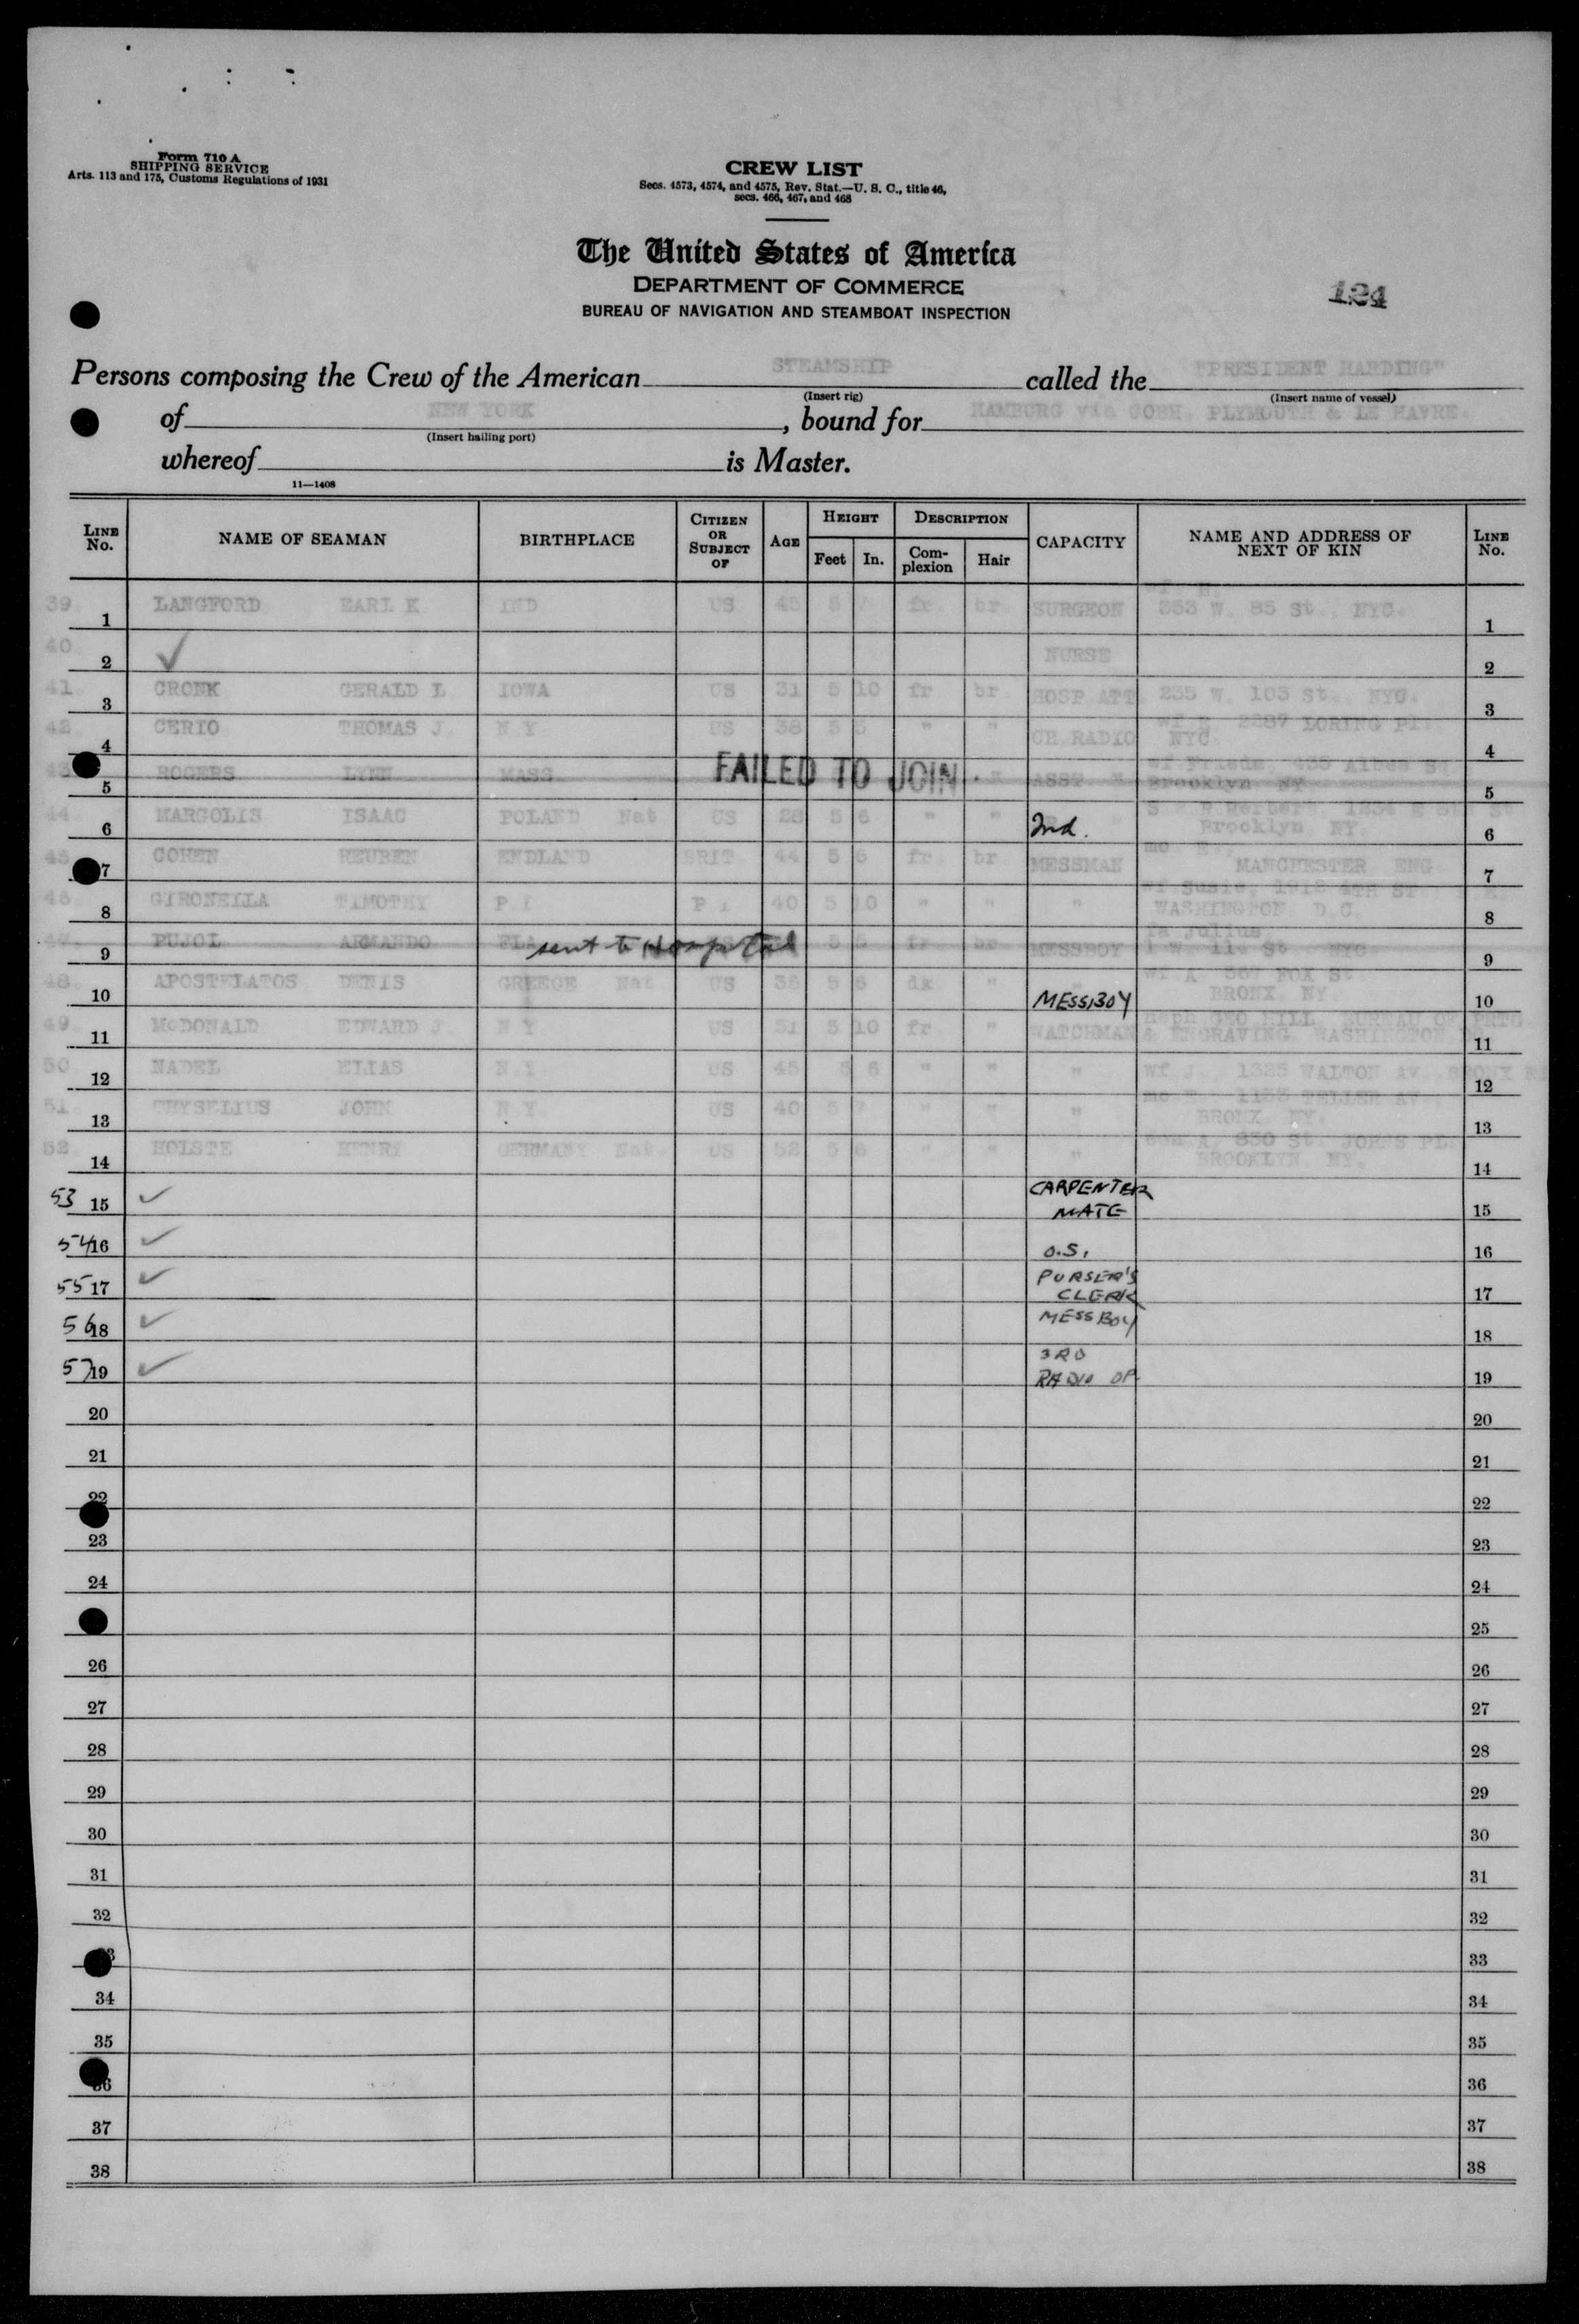 Form 710 A
SHIPPING SERVICE
Arts. 113 and 175, Customs Regulations of 1931
CREW LIST
Secs. 4573, 4574, and 4575, Rev. Stat.—U. S. C., title 46,
secs. 466, 467, and 468
The United States of America
DEPARTMENT OF COMMERCE
BUREAU OF NAVIGATION AND STEAMBOAT INSPECTION
124
Persons composing the Crew of the American STEAMSHIP called the "PRESIDENT HARDING"
(Insert rig) (Insert name of vessel)
of NEW YORK, bound for HAMBURG via COBH. PLYMOUTH & LE HAVRE.
(Insert hailing port)
whereof is Master.
11—1408
LINE No. NAME OF SEAMAN BIRTHPLACE CITIZEN OR SUBJECT OF AGE HEIGHT Feet In. DESCRIPTION Complexion Hair CAPACITY NAME AND ADDRESS OF NEXT OF KIN LINE No.
39 1 LANGFORD EARL K IND US 45 5 fr br SURGEON 353 W. 85 St. NYC. 1
40 2 ✓ NURSE 2
41 3 CRONK GERALD L IOWA US 31 5 10 fr br HOSP ATT 235 W. 103 St. NYC. 3
42 4 CERIO THOMAS J. N Y US 38 5 5 " " CH RADIO wf 2287 LORING Pl. NYC. 4
43 5 ROGERS LYNN MASS FAILED TO JOIN " ASST " wf Frieda, Brooklyn NY 5
44 6 MARGOLIS ISAAC POLAND Nat US 28 5 6 " " 2nd. " Brooklyn NY. 6
45 7 COHEN REUBEN ENDLAND BRIT 44 5 6 fr br MESSMAN mo. E., MANCHESTER ENG 7
46 8 GIRONELLA TIMOTHY P I P I 40 5 10 " " " wf Susie, 1912 4TH ST WASHINGTON D.C. 8
47 9 PUJOL ARMANDO FLA sent to Hospital 5 5 fr br MESSBOY fa Julius, 1 W. 114 St NYC 9
48 10 APOSTELATOS DENIS GREECE Nat US 36 5 6 dk " MESSBOY wf A. 567 FOX St BRONX NY. 10
49 11 McDONALD EDWARD J. N Y US 51 5 10 fr " WATCHMAN neph GEO HILL, BUREAU OF PRTG & ENGRAVING, WASHINGTON 11
50 12 NADEL ELIAS N Y US 45 5 6 " " " wf J. 1325 WALTON AV. BRONX 12
51 13 THYSELIUS JOHN N Y US 40 5 7 " " " mo 1133 TELLER AV. BRONX NY. 13
52 14 HOLSTE HENRY GERMANY Nat US 52 5 6 " " " A. 830 St. JOHNS PL. BROOKLYN NY. 14
53 15 ✓ CARPENTER MATE 15
54 16 ✓ O.S. 16
55 17 ✓ PURSER'S CLERK 17
56 18 ✓ MESSBOY 18
57 19 ✓ 3RD RADIO OP 19
20 20
21 21
22 22
23 23
24 24
25
26 26
27 27
28 28
29 29
30 30
31 31
32 32
33 33
34 34
35 35
36 36
37 37
38 38